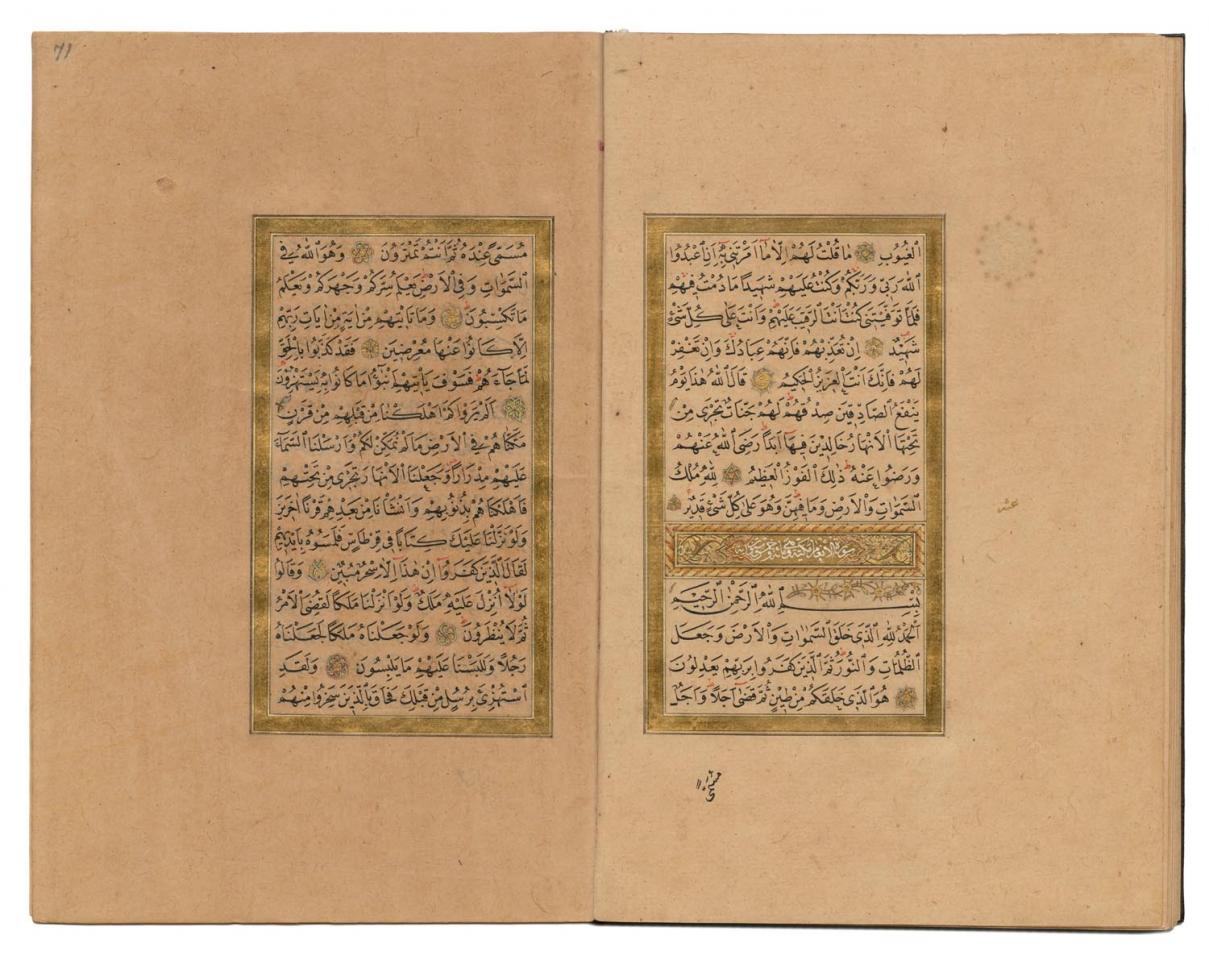 الْغُيُوبِ مَا قُلْتُ لَهُمْ اِلَّا مَا اَمَرْتَنٖى بِهٖ اَنِ اعْبُدُوا
اللّٰهَ رَبّٖى وَرَبَّكُمْ وَكُنْتُ عَلَيْهِمْ شَهٖيدًا مَا دُمْتُ فٖيهِمْ
فَلَمَّا تَوَفَّيْتَنٖى كُنْتَ اَنْتَ الرَّقٖيبَ عَلَيْهِمْ وَاَنْتَ عَلٰى كُلِّ شَیْءٍ
شَهٖيدٌ اِنْ تُعَذِّبْهُمْ فَاِنَّهُمْ عِبَادُكَ وَاِنْ تَغْفِرْ
لَهُمْ فَاِنَّكَ اَنْتَ الْعَزٖيزُ الْحَكٖيمُ قَالَ اللّٰهُ هٰذَا يَوْمُ
يَنْفَعُ الصَّادِقٖينَ صِدْقُهُمْ لَهُمْ جَنَّاتٌ تَجْرٖى مِنْ
تَحْتِهَا الْاَنْهَارُ خَالِدٖينَ فٖيهَا اَبَدًا رَضِىَ اللّٰهُ عَنْهُمْ
وَرَضُوا عَنْهُ ذٰلِكَ الْفَوْزُ الْعَظٖيمُ لِلّٰهِ مُلْكُ
السَّمٰوَاتِ وَالْاَرْضِ وَمَا فٖيهِنَّ وَهُوَ عَلٰى كُلِّ شَیْءٍ قَدٖيرٌ
سورة الانعام مكية وهى
بِسْمِ اللّٰهِ الرَّحْمٰنِ الرَّحٖيمِ
اَلْحَمْدُ لِلّٰهِ الَّذٖى خَلَقَ السَّمٰوَاتِ وَالْاَرْضَ وَجَعَلَ
الظُّلُمَاتِ وَالنُّورَ ثُمَّ الَّذٖينَ كَفَرُوا بِرَبِّهِمْ يَعْدِلُونَ
هُوَ الَّذٖى خَلَقَكُمْ مِنْ طٖينٍ ثُمَّ قَضٰى اَجَلًا وَاَجَلٌ
مسمى
عشر
71
مُسَمًّى عِنْدَهُ ثُمَّ اَنْتُمْ تَمْتَرُونَ وَهُوَ اللّٰهُ فِى
السَّمٰوَاتِ وَفِى الْاَرْضِ يَعْلَمُ سِرَّكُمْ وَجَهْرَكُمْ وَيَعْلَمُ
مَا تَكْسِبُونَ وَمَا تَاْتٖيهِمْ مِنْ اٰيَةٍ مِنْ اٰيَاتِ رَبِّهِمْ
اِلَّا كَانُوا عَنْهَا مُعْرِضٖينَ فَقَدْ كَذَّبُوا بِالْحَقِّ
لَمَّا جَاءَهُمْ فَسَوْفَ يَاْتٖيهِمْ اَنْبٰٓؤُا مَا كَانُوا بِهٖ يَسْتَهْزِؤُنَ
اَلَمْ يَرَوْا كَمْ اَهْلَكْنَا مِنْ قَبْلِهِمْ مِنْ قَرْنٍ
مَكَّنَّاهُمْ فِى الْاَرْضِ مَا لَمْ نُمَكِّنْ لَكُمْ وَاَرْسَلْنَا السَّمَاءَ
عَلَيْهِمْ مِدْرَارًا وَجَعَلْنَا الْاَنْهَارَ تَجْرٖى مِنْ تَحْتِهِمْ
فَاَهْلَكْنَاهُمْ بِذُنُوبِهِمْ وَاَنْشَاْنَا مِنْ بَعْدِهِمْ قَرْنًا اٰخَرٖينَ
وَلَوْ نَزَّلْنَا عَلَيْكَ كِتَابًا فٖى قِرْطَاسٍ فَلَمَسُوهُ بِاَيْدٖيهِمْ
لَقَالَ الَّذٖينَ كَفَرُوا اِنْ هٰذَا اِلَّا سِحْرٌ مُبٖينٌ وَقَالُوا
لَوْلَا اُنْزِلَ عَلَيْهِ مَلَكٌ وَلَوْ اَنْزَلْنَا مَلَكًا لَقُضِىَ الْاَمْرُ
ثُمَّ لَا يُنْظَرُونَ وَلَوْ جَعَلْنَاهُ مَلَكًا لَجَعَلْنَاهُ
رَجُلًا وَلَلَبَسْنَا عَلَيْهِمْ مَا يَلْبِسُونَ وَلَقَدِ
اسْتُهْزِئَ بِرُسُلٍ مِنْ قَبْلِكَ فَحَاقَ بِالَّذٖينَ سَخِرُوا مِنْهُمْ